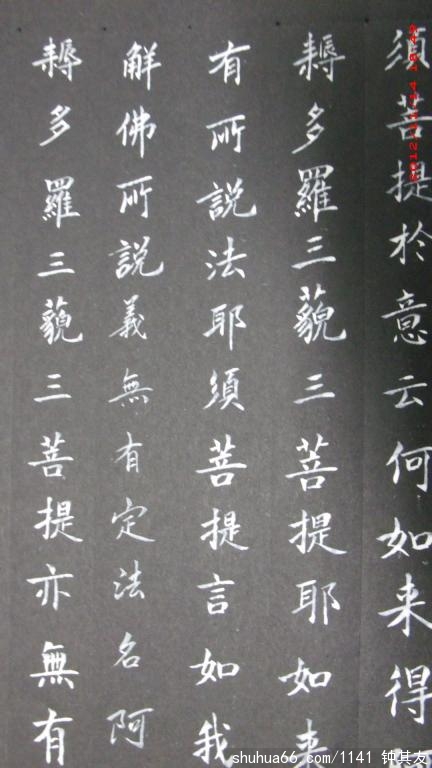 須菩提於意云何如来得阿
耨多羅三藐三菩提耶如来
有所說法耶須菩提言如我
解佛所說義無有定法名阿
耨多羅三藐三菩提亦無有
shuhua66.com/1141 钟其友